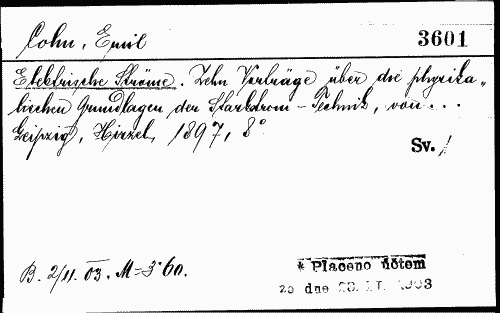 Cohn, Emil
3601
Elektrische Ströme. Zehn Vorträge über die physika-
lischen Grundlagen der Starkstrom-Technik, von...
Leipzig, Hirzel, 1897, 8°
Sv. /
B. 2/11. 03. M=3·60.
* Placeno účtem
ze dne 1903